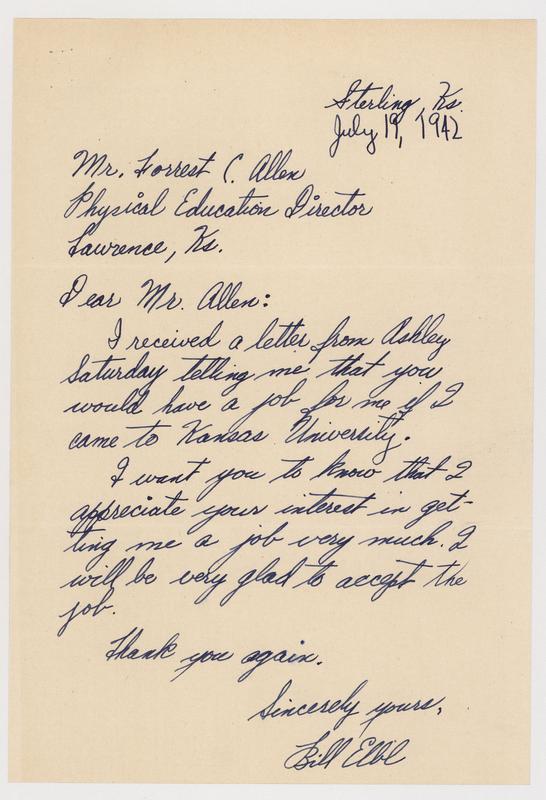 Sterling, Ks.
July 19, 1942
Mr. Forrest C. Allen
Physical Education Director
Lawrence, Ks.
Dear Mr. Allen:
I received a letter from Ashley
Saturday telling me that you
would have a job for me if I
came to Kansas University.
I want you to know that I
appreciate your interest in get-
ting me a job very much. I
will be very glad to accept the
job.
Thank you again.
Sincerely yours,
Bill Elbl